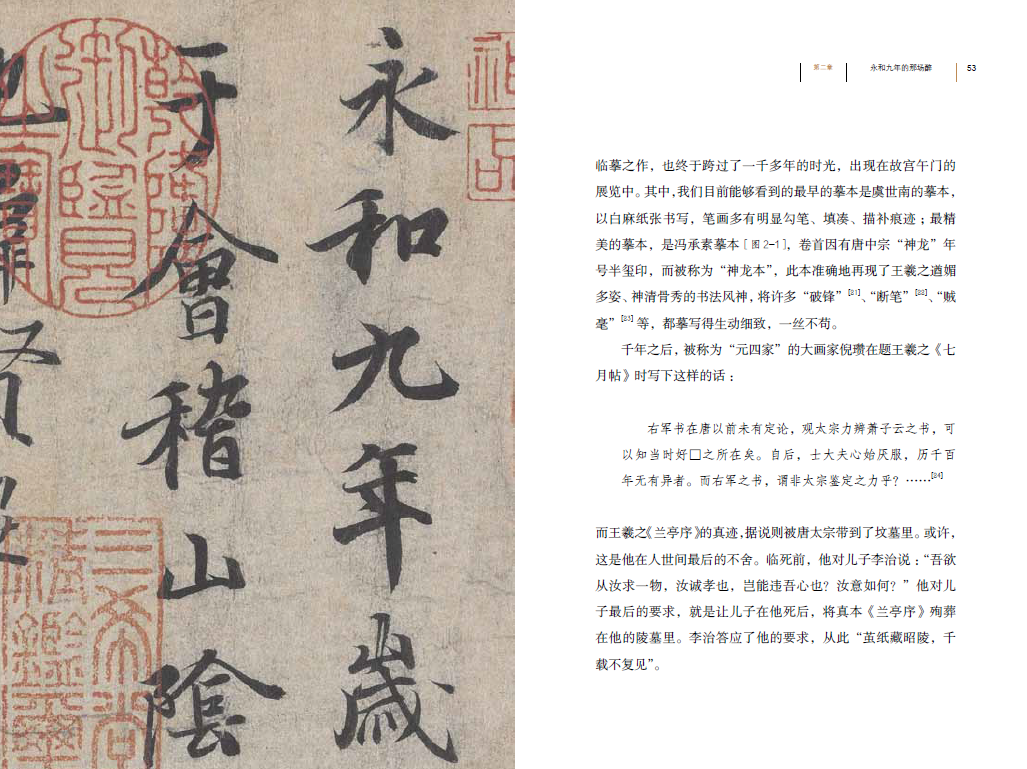 永和九年歲
于會稽山陰
羣賢
第二章 永和九年的那场醉 53
临摹之作，也终于跨过了一千多年的时光，出现在故宫午门的
展览中。其中，我们目前能够看到的最早的摹本是虞世南的摹本，
以白麻纸张书写，笔画多有明显勾笔、填凑、描补痕迹；最精
美的摹本，是冯承素摹本［图2-1］，卷首因有唐中宗“神龙”年
号半玺印，而被称为“神龙本”，此本准确地再现了王羲之遒媚
多姿、神清骨秀的书法风神，将许多“破锋”[21]、“断笔”[22]、“贼
毫”[23]等，都摹写得生动细致，一丝不苟。
千年之后，被称为“元四家”的大画家倪瓒在题王羲之《七
月帖》时写下这样的话：
右军书在唐以前未有定论，观太宗力辨萧子云之书，可
以知当时好□之所在矣。自后，士大夫心始厌服，历千百
年无有异者。而右军之书，谓非太宗鉴定之力乎？……[24]
而王羲之《兰亭序》的真迹，据说则被唐太宗带到了坟墓里。或许，
这是他在人世间最后的不舍。临死前，他对儿子李治说：“吾欲
从汝求一物，汝诚孝也，岂能违吾心也？汝意如何？”他对儿
子最后的要求，就是让儿子在他死后，将真本《兰亭序》殉葬
在他的陵墓里。李治答应了他的要求，从此“茧纸藏昭陵，千
载不复见”。